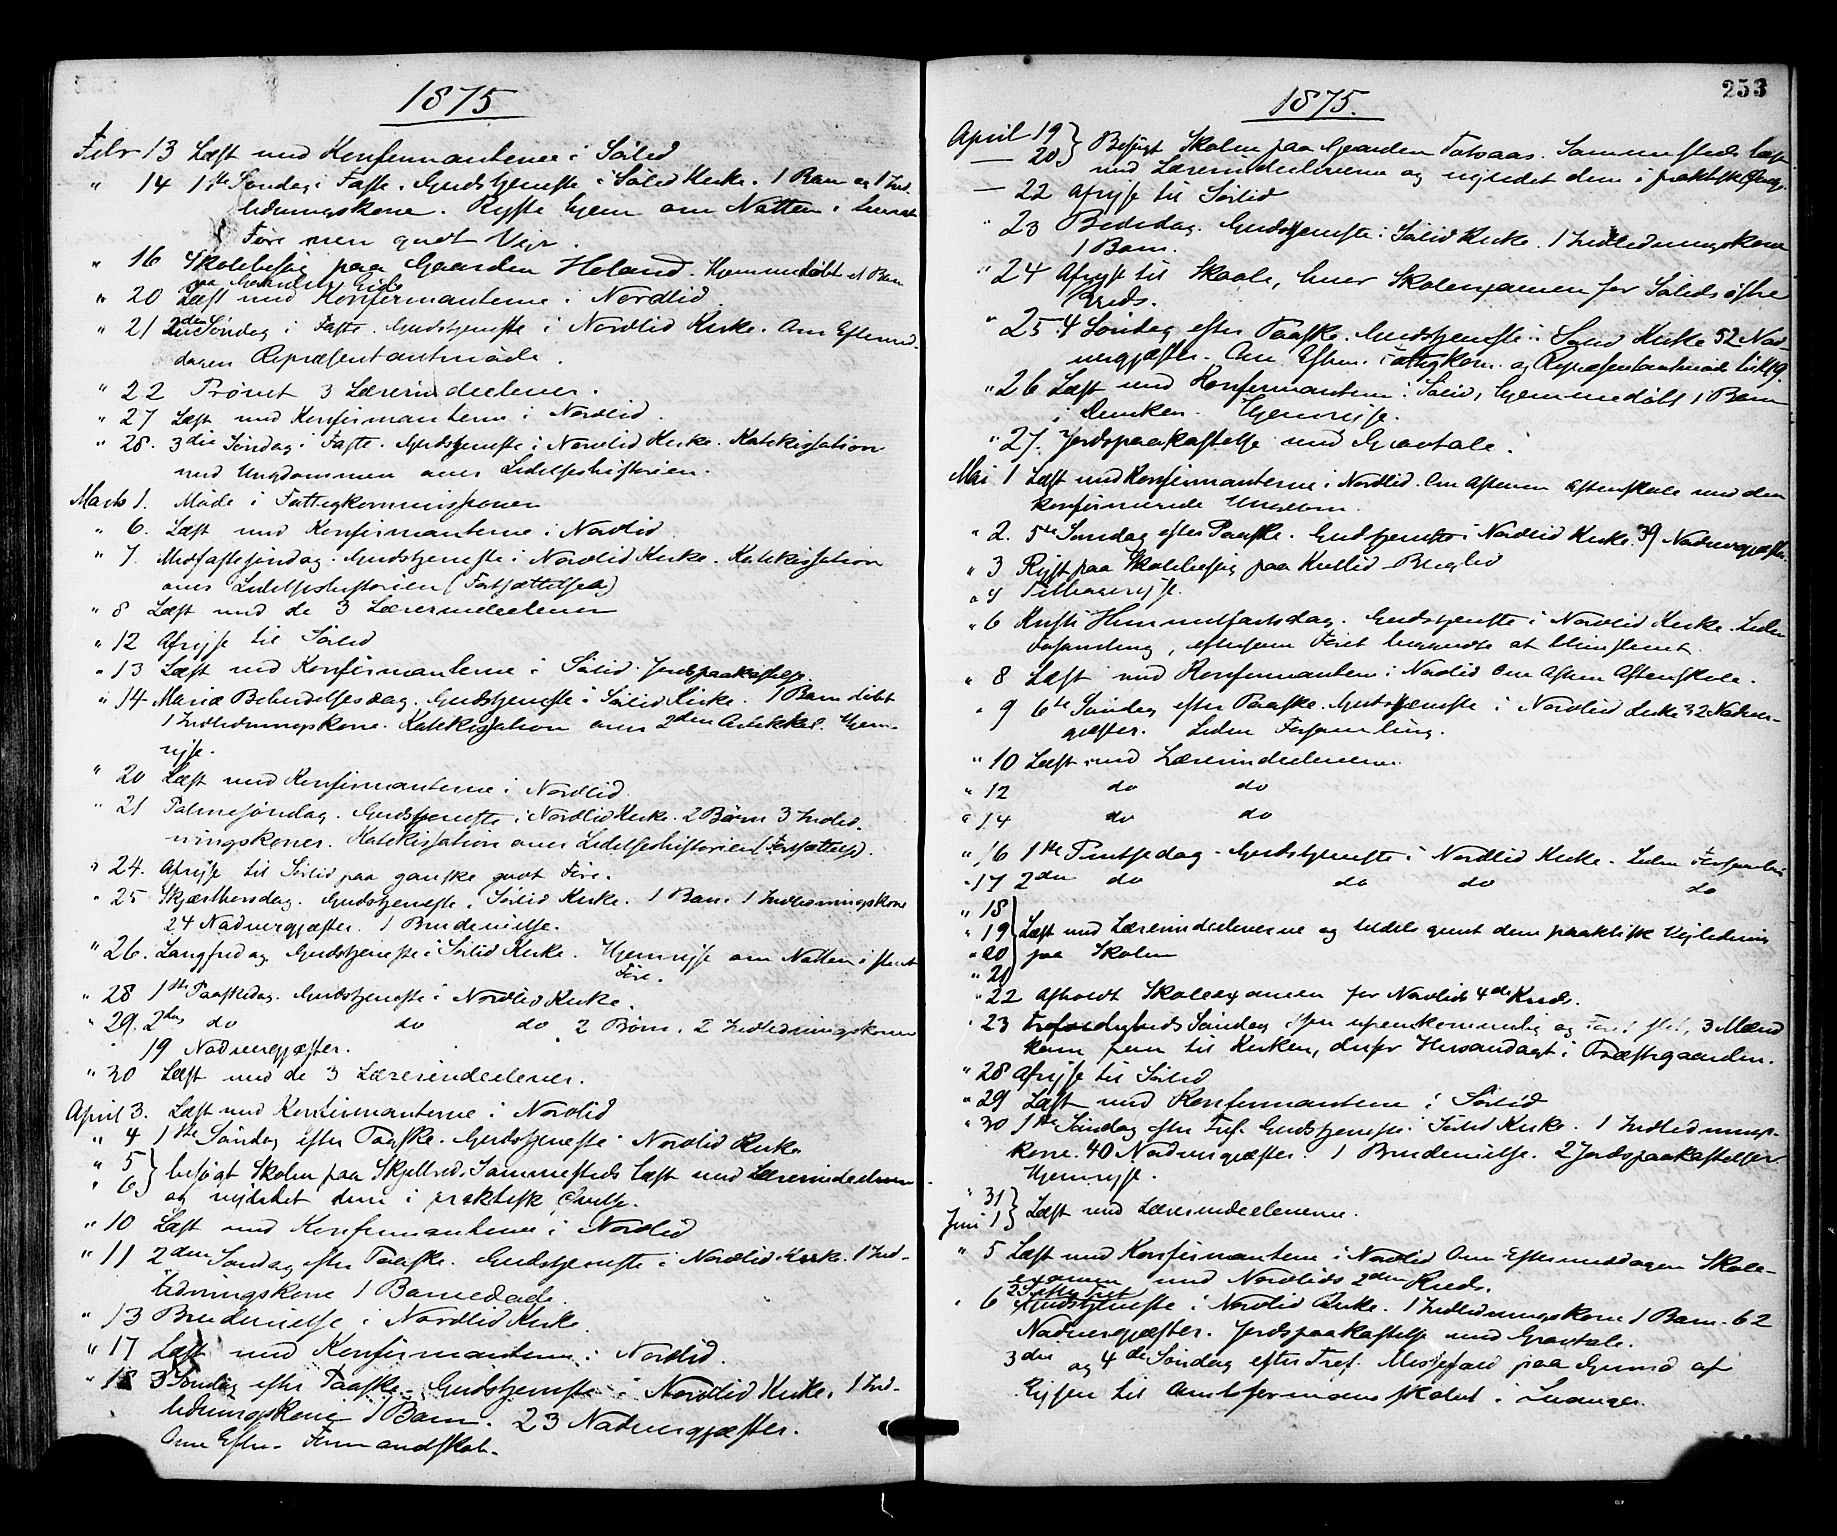 1875
Febr 13 Læst med Konfirmanterne i Sörlid
" 14 1ste Söndag i Faste. Gudstjeneste i Sörlid Kirke. 1 Barn og 1 Ind-
ledningskone. Rejste hjem om Natten i
Före men godt Vejr.
" 16 Skolebesög paa Gaarden Holand. Hjemmedöbt et Barn
paa Gaarden Eide
" 20 Læst med Konfirmanterne i Nordlid
" 21 2den Söndag i Faste. Gudstjeneste i Nordlid Kirke. Om Eftermid-
dagen Repræsentantmöde.
" 22 Prövet 3 Lærerindeelever.
" 27 Læst med Konfirmanterne i Nordlid.
" 28. 3die Söndag i Faste. Gudstjeneste i Nordlid Kirke. Katekisation
med Ungdommen over Lidelseshistorien.
Marts 1. Möde i Fattigkommissionen
" 6. Læst med Konfirmanterne i Nordlid.
" 7. Midfastesöndag. Gudstjeneste i Nordlid Kirke. Katekisation
over Lidelseshistorien (Fortsættelsen)
" 8 Læst med de 3 Lærerindeelever
" 12 Afrejse til Sörlid
" 13 Læst med Konfirmanterne i Sörlid. Jordspaakastelse.
" 14 Mariæ Bebudelsesdag. Gudstjeneste i Sörlid Kirke. 1 Barn döbt
1 Indledningskone. Katekisation over 2den Artikkel. Hjem-
rejse.
" 20 Læst med Konfirmanterne i Nordlid.
" 21 Palmesöndag. Gudstjeneste i Nordlid Kirke. 2 Börn 3 Indled-
ningskoner. Katekisation over Lidelseshistorien (Fortsættelse).
" 24. Afrejse til Sörlid paa ganske godt Före.
" 25 Skjærthorsdag. Gudstjeneste i Sörlid Kirke. 1 Barn 1 Indledningskone
24 Nadvergjæster. 1 Brudevielse.
" 26. Langfredag Gudstjeneste i Sörlid Kirke. Hjemrejse om Natten i slet
Före.
" 28 1ste Paaskedag. Gudstjeneste i Nordlid Kirke.
" 29. 2den do do do 2 Börn. 2 Indledningskoner
19 Nadvergjæster.
" 30 Læst med de 3 Lærerindeelever.
April 3. Læst med Konfirmanterne i Nordlid
" 4 1ste Söndag efter Paaske. Gudstjeneste i Nordlid Kirke
" 5 } besögt Skolen paa Skjelbred. Sammesteds læst med Lærerindeeleverne
" 6 } og vejledet dem i praktisk Övelse.
" 10 Læst med Konfirmanterne i Nordlid
" 11 2den Söndag efter Paaske. Gudstjeneste i Nordlid Kirke. 1 Ind-
ledningskone 1 Barnedaab.
" 13 Brudevielse i Nordlid Kirke.
" 17 Læst med Konfirmanterne i Nordlid.
" 18 3 Söndag efter Paaske. Gudstjeneste i Nordlid Kirke. 1 Ind-
ledningskone 1 Barn. 23 Nadvergjæster.
Om Efterm. Formandskab.
253
1875.
April 19 } Besögt Skolen paa Gaarden Totsaas. Sammesteds læst
— 20 } med Lærerindeeleverne og vejledet dem i praktisk
— 22 Afrejse til Sörlid
" 23 Bededag. Gudstjeneste i Sörlid Kirke. 1 Indledningskone
1 Barn.
" 24 Afrejst til Skaale, hvor Skoleexamen for Sörlids östre
Kreds.
" 25 4 Söndag efter Paaske. Gudstjeneste i Sörlid Kirke 52 Nad-
vergjæster. Om Efterm. Fattigkom. og Repræsentantmöde
" 26 Læst med Konfirmanterne i Sörlid, hjemmedöbt 1 Barn
i Devika. Hjemrejse.
" 27. Jordspaakastelse med Gravtale.
Mai 1 Læst med Konfirmanterne i Nordlid. Om Aftenen Aftenskole med den
konfirmerede Ungdom.
" 2. 5te Söndag efter Paaske. Gudstjeneste i Nordlid Kirke. 39 Nadvergjæster.
" 3 Rejst paa Skolebesög paa Kvelid
" 4 Tilbagerejse.
" 6 Kristi Himmelfartsdag. Gudstjeneste i Nordlid Kirke. Liden
Forsamling, eftersom Föret begyndte at blive slemt.
" 8 Læst med Konfirmanterne i Nordlid Om Aftenen Aftenskole.
" 9 6te Söndag efter Paaske. Gudstjeneste i Nordlid Kirke 32 Nadver-
gjæster. Liden Forsamling.
" 10 Læst med Lærerindeeleverne.
" 12 do do
" 14 do do
" 16 1ste Pintsedag. Gudstjeneste i Nordlid Kirke. Liden Forsamling
" 17 2den do do do do
" 18
" 19 } Læst med Lærerindeeleverne og tildels givet dem praktisk Vejledning
" 20 } paa Skolen
" 21
" 22 Afholdt Skoleexamen for Nordlids 4de Kreds.
" 23 Trefoldigheds Söndag Isen ufremkommelig og Föret slet, 3 Mænd
kom frem til Kirken, derfor Husandagt i Præstegaarden.
" 28 Afrejse til Sörlid
" 29 Læst med Konfirmanterne i Sörlid
" 30 1ste Söndag efter Tref. Gudstjeneste i Sörlid Kirke. 1 Indlednings-
kone. 40 Nadvergjæster. 1 Brudevielse. 2 Jordspaakastelser
Hjemrejse.
" 31 } Læst med Lærerindeeleverne.
Juni 1 }
" 5 Læst med Konfirmanterne i Nordlid Om Eftermiddagen Skole-
examen med Nordlids 2den Kreds.
2 S. efter Tref
" 6 Gudstjeneste i Nordlid Kirke. 1 Indledningskone 1 Barn. 62
Nadvergjæster. Jordspaakastelse med Gravtale.
3die og 4de Söndag efter Tref. Messefald paa Grund af
Rejsen til Amtsformandskabet i Levanger.